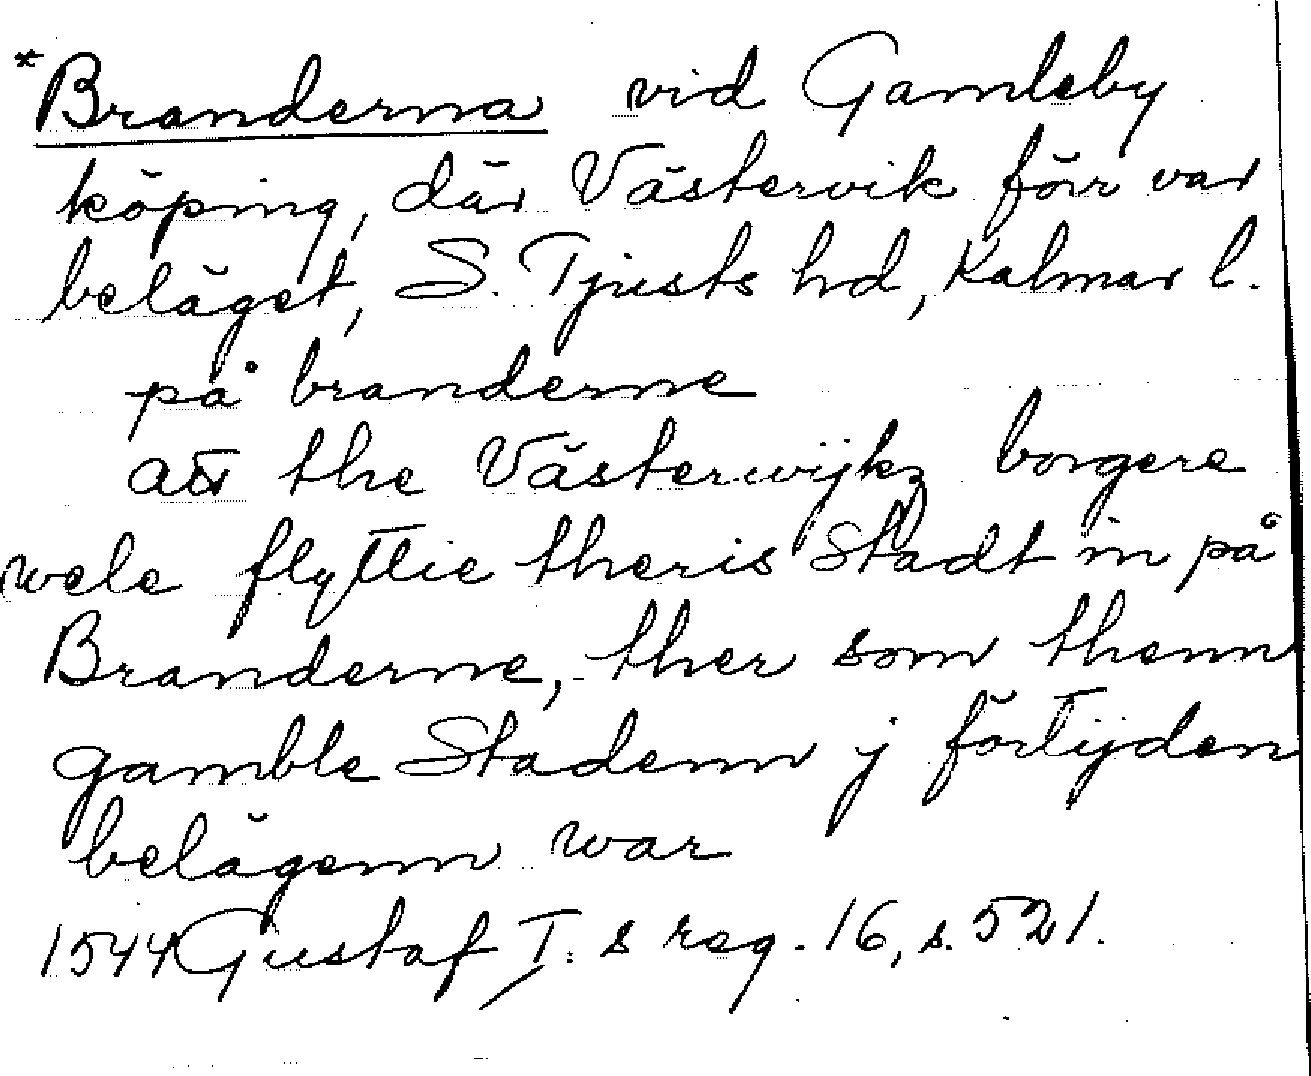 *Branderna vid Gamleby
köping, där Västervik förr var
beläget, S. Tjusts hd, Kalmar l.
på branderne
att the Västerwijkz borgere
wele flyttie theris Stadt in på
Branderne, ther som thenn
gamble Stadenn j förtijden
belägenn war
1544 Gustaf I:s reg. 16, s. 521.